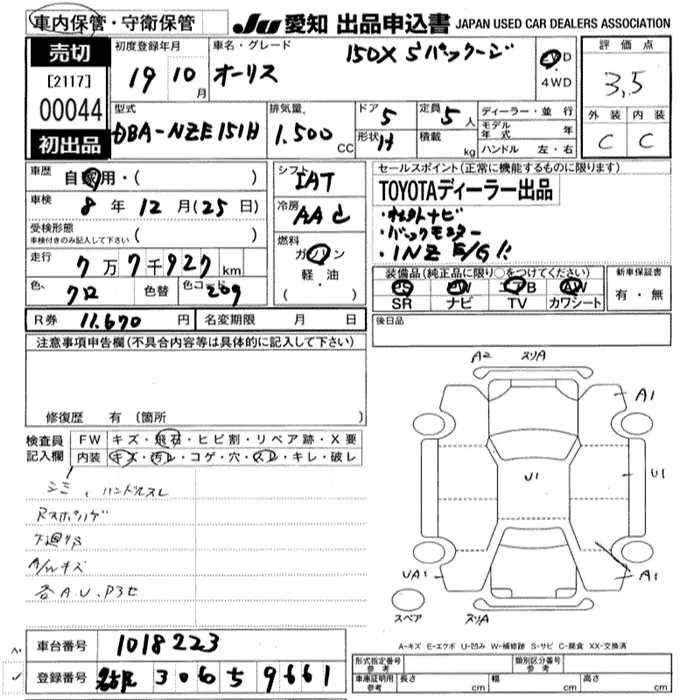 車内保管・守衛保管
JU 愛知 出品申込書 JAPAN USED CAR DEALERS ASSOCIATION
売切
[2117]
00044
初出品
初度登録年月
19 10月
車名・グレード
オーリス 150X Sパッケージ
FWD
4WD
評価点
3,5
外装 内装
C C
型式
DBA-NZE151H
排気量
1.500 CC
ドア 5
形状 H
定員 5人
積載 kg
ディーラー・並行
モデル年式 年
ハンドル 左・右
車歴
自家用・( )
車検
8年12月(25日)
受検形態
車検付きのみ記入して下さい ( )
走行
7万7千927km
色
クロ 色替 色コード 209
シフト
IAT
冷房
AAC
燃料
ガソリン
軽・油
( )
R券 11.670円 名変期限 月 日
セールスポイント(正常に機能するものに限ります)
TOYOTAディーラー出品
・バックモニター
・1NZ E/G
装備品(純正品に限り○をつけてください)
PS PW エアB AW
SR ナビ TV カワシート
新車保証書
有・無
後日品
注意事項申告欄(不具合内容等は具体的に記入して下さい)
修復歴 有(箇所 )
検査員記入欄
FW キズ・飛石・ヒビ割・リペア跡・X要
内装 キズ・汚レ・コゲ・穴・スレ・キレ・破レ
シミ、ハンドルスレ
下廻サビ
A/Wキズ
各A.U.P3セ
A2 スリA
A1
U1
U1
UA1
A1
スペア
A-キズ E-エクボ U-凹み W-補修跡 S-サビ C-腐食 XX-交換済
車台番号 1018223
登録番号 306 5 9661
形式指定番号 参考
類別区分番号 参考
車庫証明用 参考 長さ cm 幅 cm 高さ cm